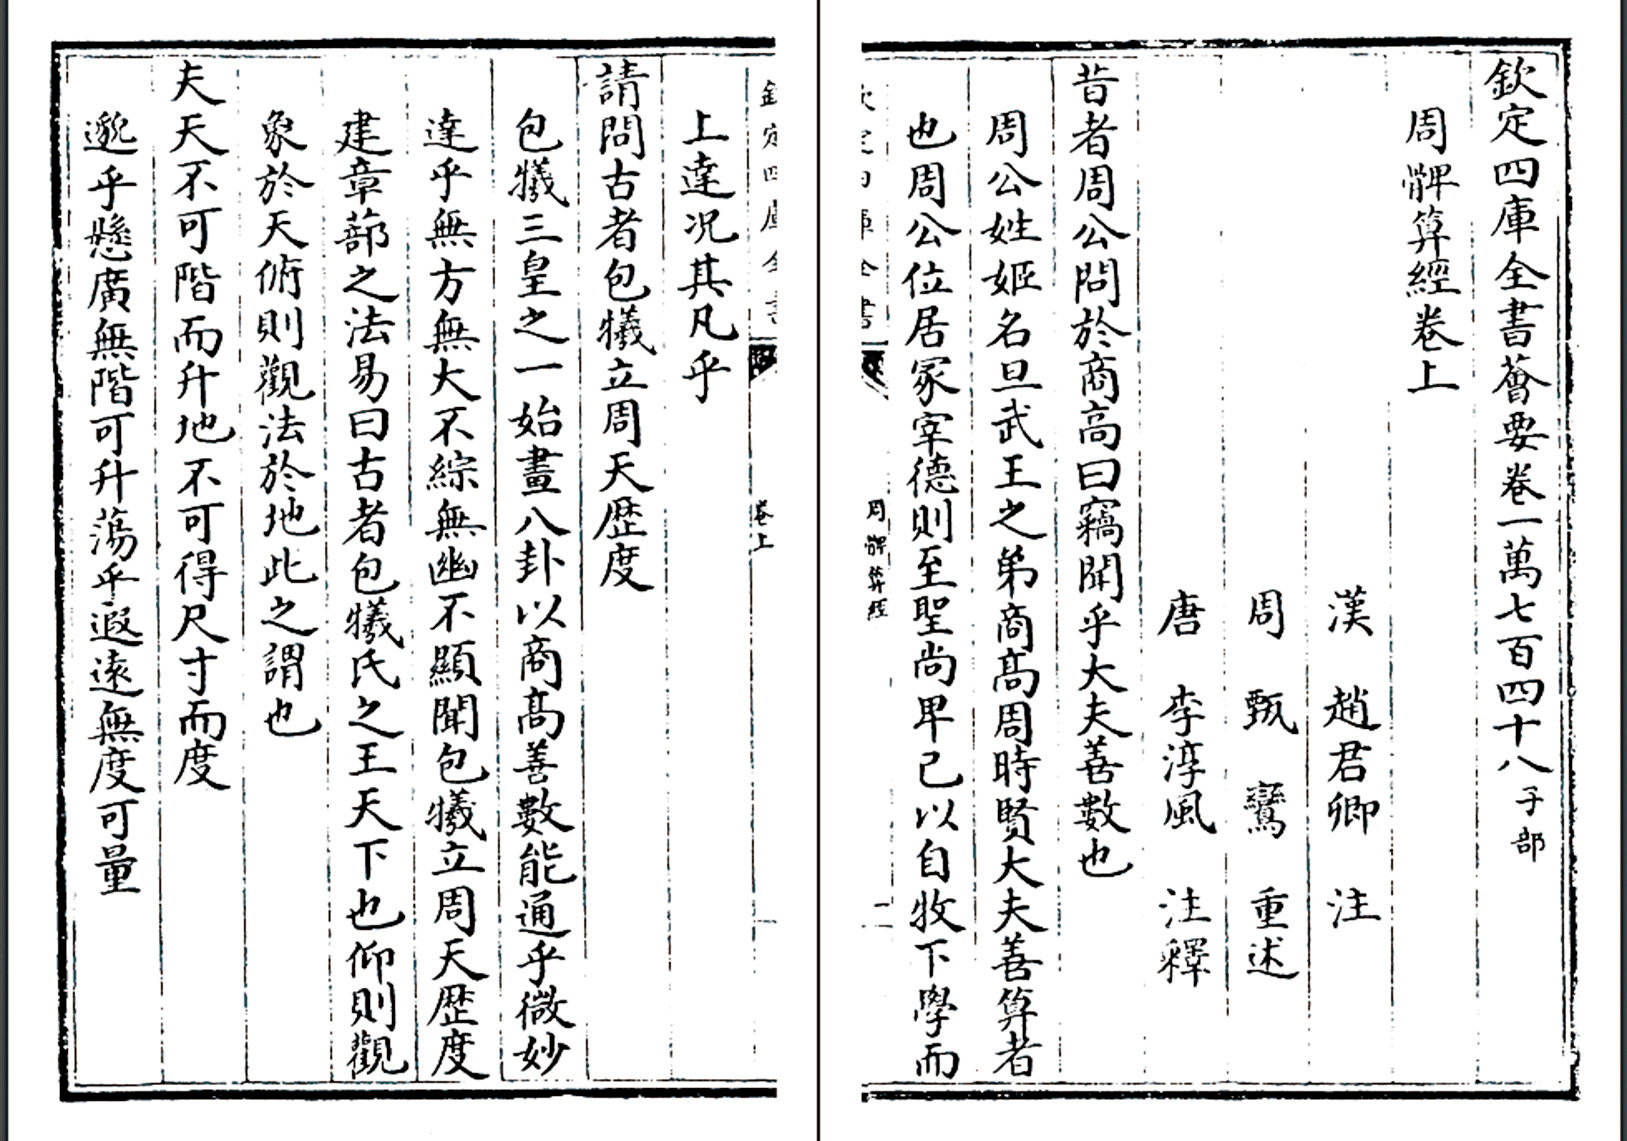 欽定四庫全書薈要卷一萬七百四十八子部
周髀算經卷上
漢 趙君卿 注
周 甄鸞 重述
唐 李淳風 注釋
昔者周公問於商高曰竊聞乎大夫善數也
周公姓姬名旦武王之弟商高周時賢大夫善算者
也周公位居冢宰德則至聖尚卑己以自牧下學而
周髀算經
一
欽定四庫全書
卷上
上達况其凡乎
請問古者包犧立周天歴度
包犧三皇之一始畫八卦以商高善數能通乎微妙
達乎無方無大不綜無幽不顯聞包犧立周天歴度
建章蔀之法易曰古者包犧氏之王天下也仰則觀
象於天俯則觀法於地此之謂也
夫天不可階而升地不可得尺寸而度
邈乎懸廣無階可升蕩乎遐遠無度可量